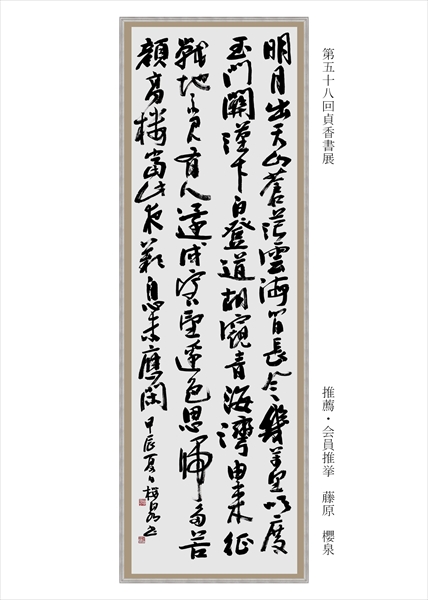 第五十八回貞香書展
推薦・会員推挙　藤原　櫻泉
明月出天山蒼茫雲海間長風幾萬里吹度
玉門關漢下白登道胡窺青海灣由来征
戰地不見有人還戍客望邊色思歸多苦
顔高樓當此夜歎息未應閑 甲辰夏日櫻泉書